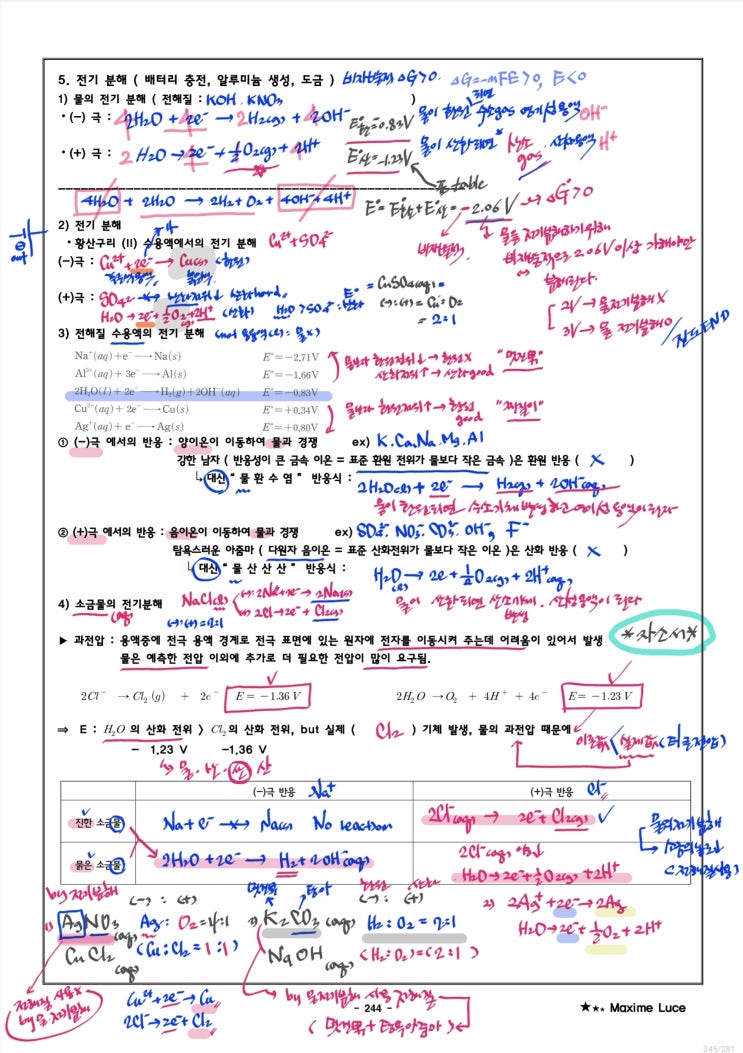 5. 전기 분해 ( 배터리 충전, 알루미늄 생성, 도금 ) 비자발적 ΔG>0. ΔG=-nFE>0, E<0
1) 물의 전기 분해 ( 전해질 : KOH. KNO₃ )
• (-) 극 : 4H₂O + 4e⁻ → 2H₂(g) + 4OH⁻ E°환=-0.83V 물이 환원되면 수소gas 염기성용액 OH⁻
• (+) 극 : 2 H₂O → 2e⁻ + ½O₂(g) + 2H⁺ E°산=-1.23V 물이 산화되면 산소gas. 산성용액 H⁺
table
4H₂O + 2H₂O → 2H₂ + O₂ + 4OH⁻+4H⁺ E°=E°환+E°산=-2.06V → ΔG°>0
2) 전기 분해
• 황산구리 (II) 수용액에서의 전기 분해 Cu²⁺+SO₄²⁻
비자발적 물을 전기분해하기위해
비자발적으로 2.06V이상 가해야만
분해된다.
(-)극: Cu²⁺+2e⁻ → Cu(s) (환원)
(+)극: SO₄²⁻
H₂O → 2e⁻+½O₂+2H⁺ (산화) H₂O>SO₄²⁻
CuSO₄(aq) =
(-):(+) = Cu:O₂
= 2:1
2V → 물전기분해 X
3V → 물 전기분해 O
END
3) 전해질 수용액의 전기 분해 (not 용융액(l): 물X)
Na⁺(aq)+e⁻ → Na(s) E°=-2.71V
Al³⁺(aq)+ 3e⁻ → Al(s) E°=-1.66V
2H₂O(l)+ 2e⁻ → H₂(g)+2OH⁻(aq) E°=-0.83V
Cu²⁺(aq)+ 2e⁻ → Cu(s) E°=+0.34V
Ag⁺(aq)+ e⁻ → Ag(s) E°=+0.80V
물보다 환원전위↓ → 환원X
산화전위↑ → 산화good
물보다 환원전위↑ → 환원 good
① (-)극 에서의 반응 : 양이온이 이동하여 물과 경쟁 ex) K.Ca.Na.Mg.Al
강한 남자 ( 반응성이 큰 금속 이온 = 표준 환원 전위가 물보다 작은 금속 )은 환원 반응 ( X )
대신 “ 물 환 수 염 ” 반응식 : 2H₂O(l) + 2e⁻ → H₂(g) + 2OH⁻(aq)
물이 환원되면 수소기체 발생하고 염기성 용액이 된다
② (+)극 에서의 반응 : 음이온이 이동하여 물과 경쟁 ex) SO₄²⁻. NO₃⁻. CO₃²⁻. OH⁻, F⁻
탐욕스러운 아줌마 ( 다원자 음이온 = 표준 산화전위가 물보다 작은 이온 )은 산화 반응 ( X )
대신 “ 물 산 산 산 ” 반응식 : H₂O(l) → 2e⁻+½O₂(g)+2H⁺(aq)
물이 산화되면 산소기체 발생. 산성용액이 된다
4) 소금물의 전기분해 NaCl(l) (-): 2Na⁺+2e⁻ → 2Na(s)
(aq) (+): 2Cl⁻ → 2e⁻+Cl₂(g)
(-):(+)=2:1
▶ 과전압 : 용액중에 전극 용액 경계로 전극 표면에 있는 원자에 전자를 이동시켜 주는데 어려움이 있어서 발생 *자소서*
물은 예측한 전압 이외에 추가로 더 필요한 전압이 많이 요구됨.
2Cl⁻ → Cl₂ (g) + 2e⁻ E = -1.36 V 2H₂O → O₂ + 4H⁺ + 4e⁻ E = -1.23 V
⇒ E : H₂O 의 산화 전위 〉 Cl₂의 산화 전위, but 실제 ( Cl₂ ) 기체 발생, 물의 과전압 때문에
- 1.23 V -1.36 V
이론값 < 실제값 (더 큰전압)
물. 산. 산. 산
(-)극 반응 Na⁺ (+)극 반응 Cl⁻
진한 소금물 Na+e⁻ → Na(s) No reaction 2Cl⁻(aq) → 2e⁻+Cl₂(g)
묽은 소금물 2H₂O+2e⁻ → H₂+2OH⁻(aq) 2Cl⁻(aq)
H₂O → 2e⁻+½O₂(g)+2H⁺
물의전기분해
by 전기분해 (-) : (+)
1) AgNO₃(aq) Ag: O₂=4:1
CuCl₂(aq) (Cu:Cl₂=1:1)
2) K₂CO₃(aq) H₂:O₂=2:1
NaOH(aq) (H₂:O₂)=(2:1)
2) 2Ag⁺+2e⁻ → 2Ag
H₂O → 2e⁻+½O₂+2H⁺
전해질 사용X
by 물 전기분해
Cu²⁺+2e⁻ → Cu
2Cl⁻ → 2e⁻+Cl₂
by 물전기분해 사용 전해질
- 244 -
★★★ Maxime Luce
245/281